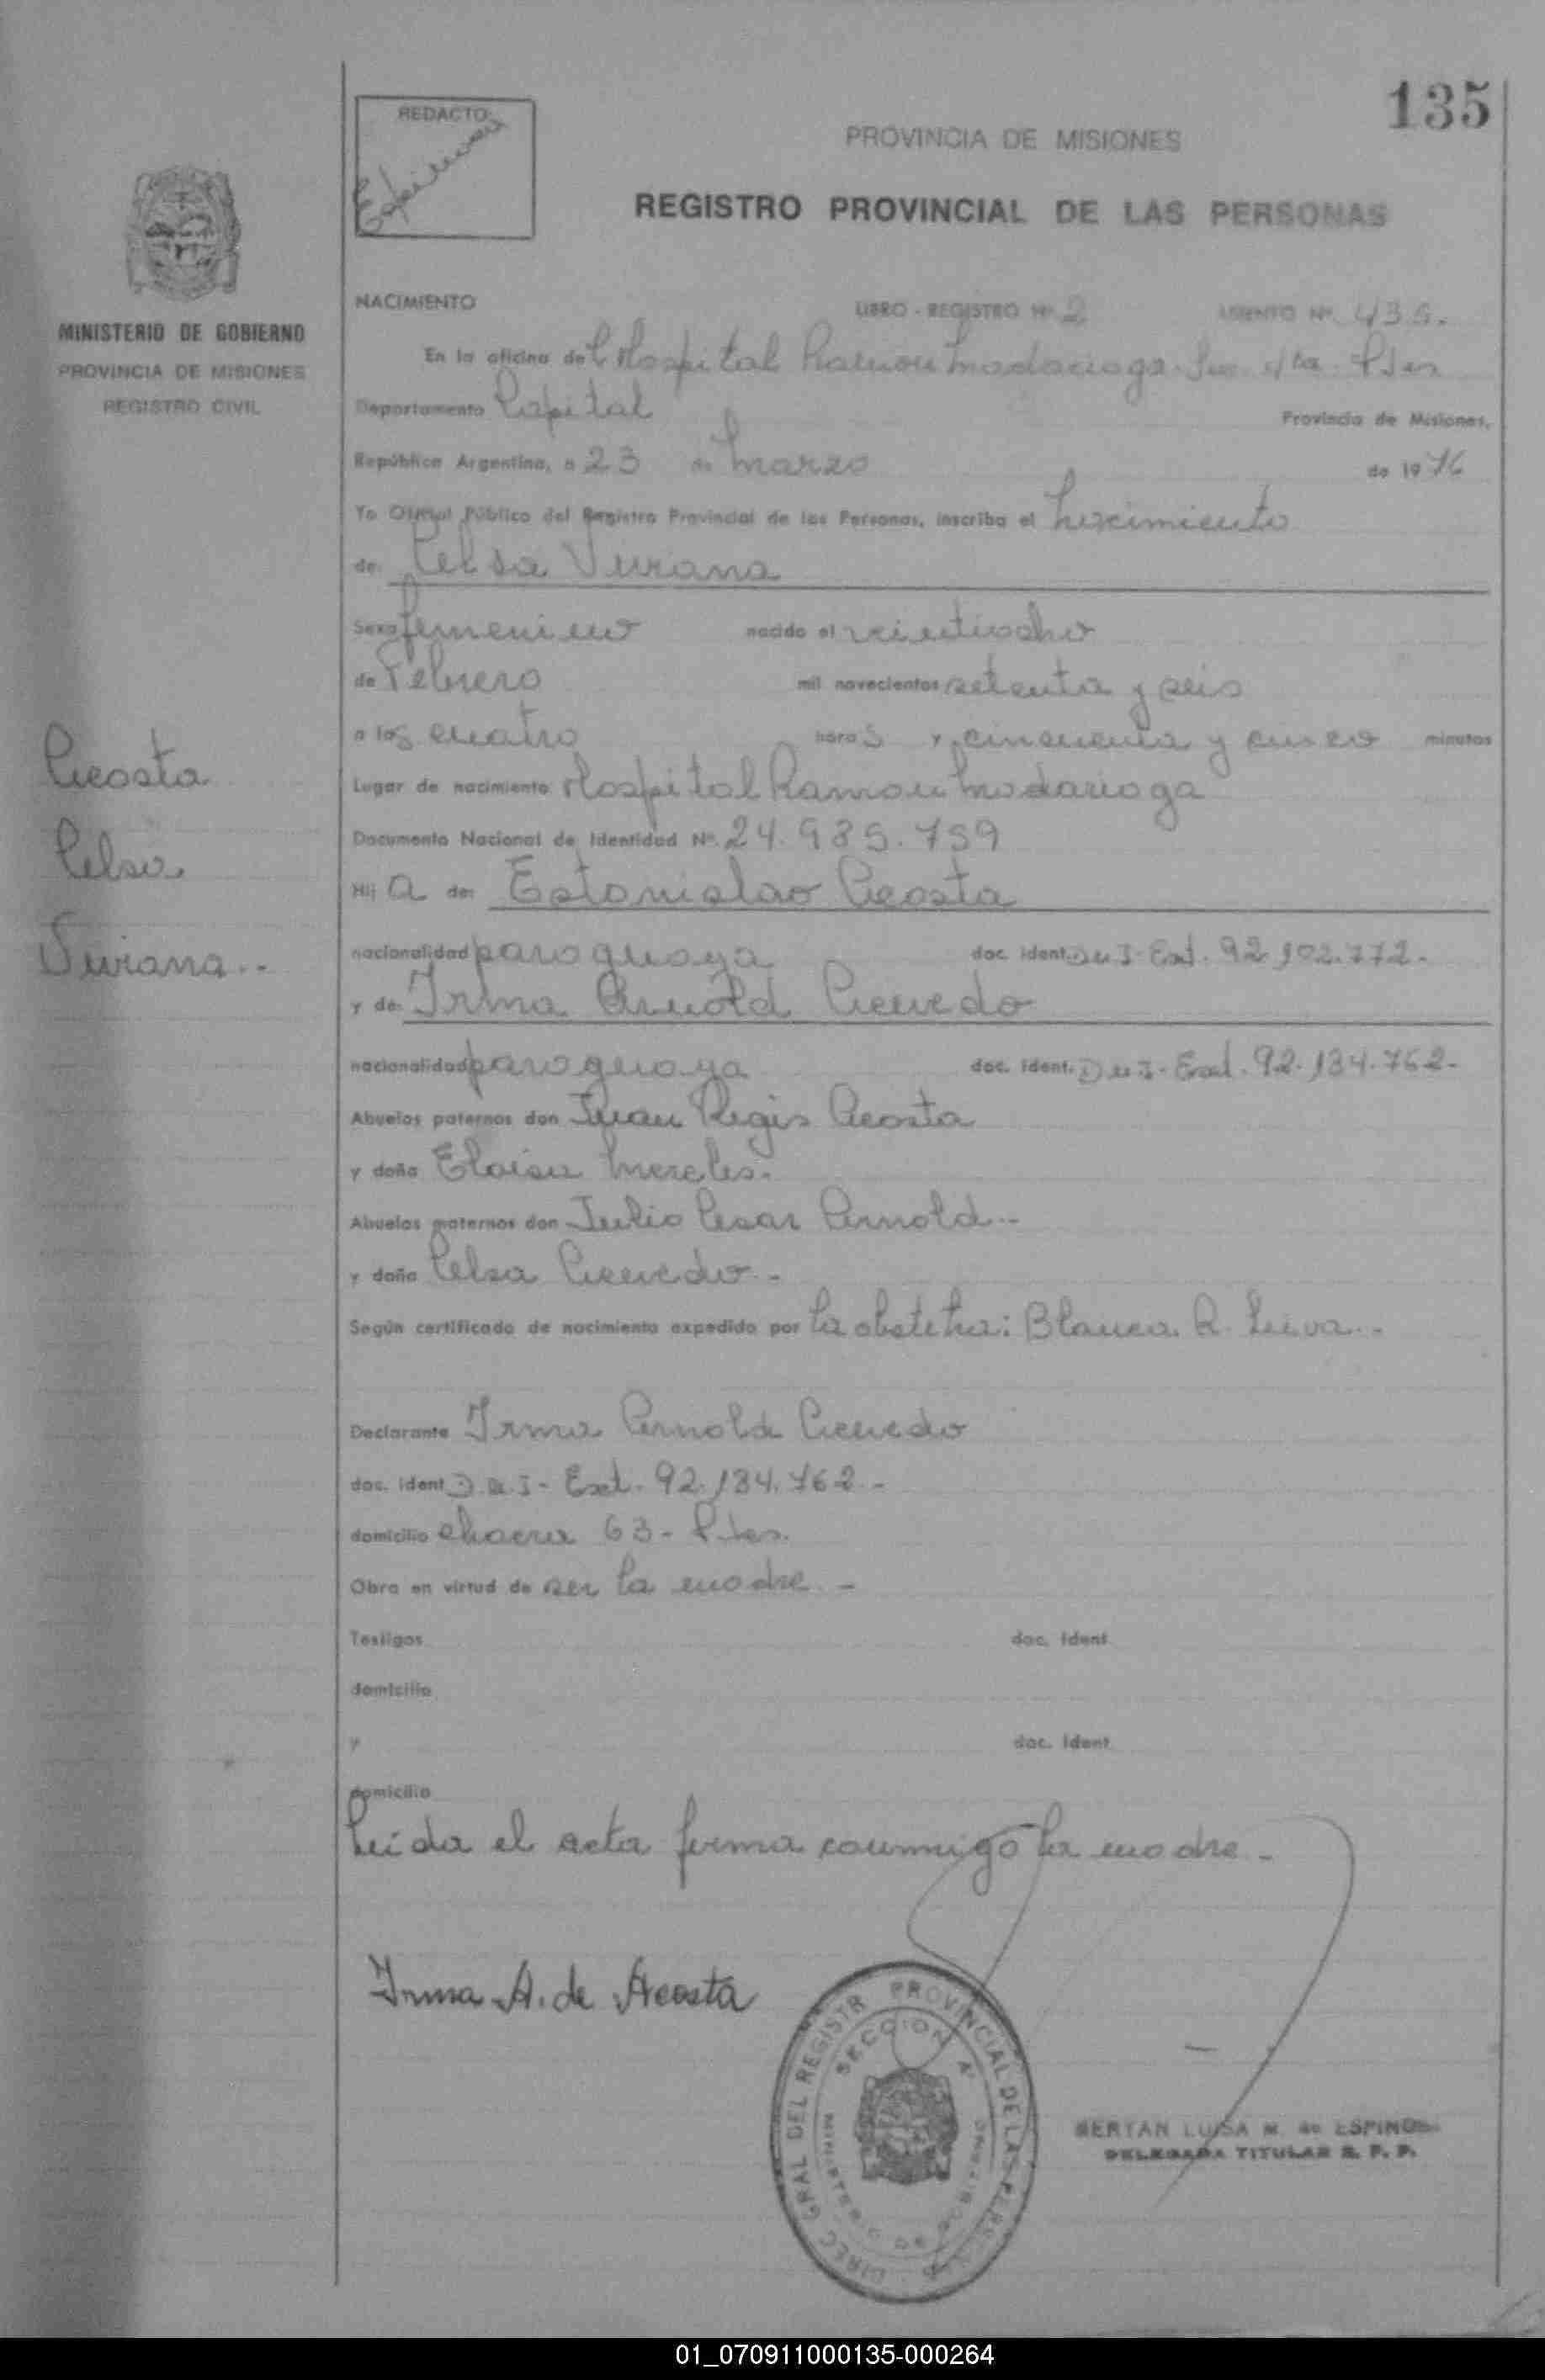 135
REDACTO
PROVINCIA DE MISIONES
REGISTRO PROVINCIAL DE LAS PERSONAS
MINISTERIO DE GOBIERNO
PROVINCIA DE MISIONES
REGISTRO CIVIL
NACIMIENTO LIBRO - REGISTRO Nº 2 ASIENTO Nº 435.
En la oficina del Hospital Ramon Madariaga
Departamento Capital Provincia de Misiones,
República Argentina, a 23 de Marzo de 1976
Yo Oficial Público del Registro Provincial de las Personas, inscribo el Nacimiento
de: Celsa Viviana
Sexo femenino nacido el veintiocho
de Febrero mil novecientos setenta y seis
a las cuatro horas y cincuenta y cinco minutos
Acosta
Celsa
Viviana..
Lugar de nacimiento Hospital Ramon Madariaga
Documento Nacional de Identidad Nº. 24.985.759
Hij a de: Estanislao Acosta
nacionalidad paraguaya doc. ident. D.N.I-Ext. 92.102.772.
y de: Irma Arnold Acevedo
nacionalidad paraguaya doc. ident. D.N.I-Ext. 92.134.762-
Abuelos paternos don Juan Regis Acosta
y doña Eloisa Mereles.
Abuelos maternos don Julio Cesar Arnold..
y doña Celsa Acevedo.
Según certificado de nacimiento expedido por la obstetra: Blanca R. Leiva..
Declarante Irma Arnold Acevedo
doc. ident D.N.I- Ext. 92.134.762-
domicilio chacra 63- Pdas.
Obra en virtud de ser la madre -
Testigos doc. ident
domicilio
y doc. ident
domicilio
Leida el acta firma conmigo la madre -
Irma A. de Acosta
DIREC GRAL DEL REGISTR PROVINCIAL DE LAS PERSONAS
SECCION Aª
MINISTERIO DE GOBIERNO
BERTAN LUISA M. de ESPINOS
DELEGADA TITULAR R. P. P.
01_070911000135-000264